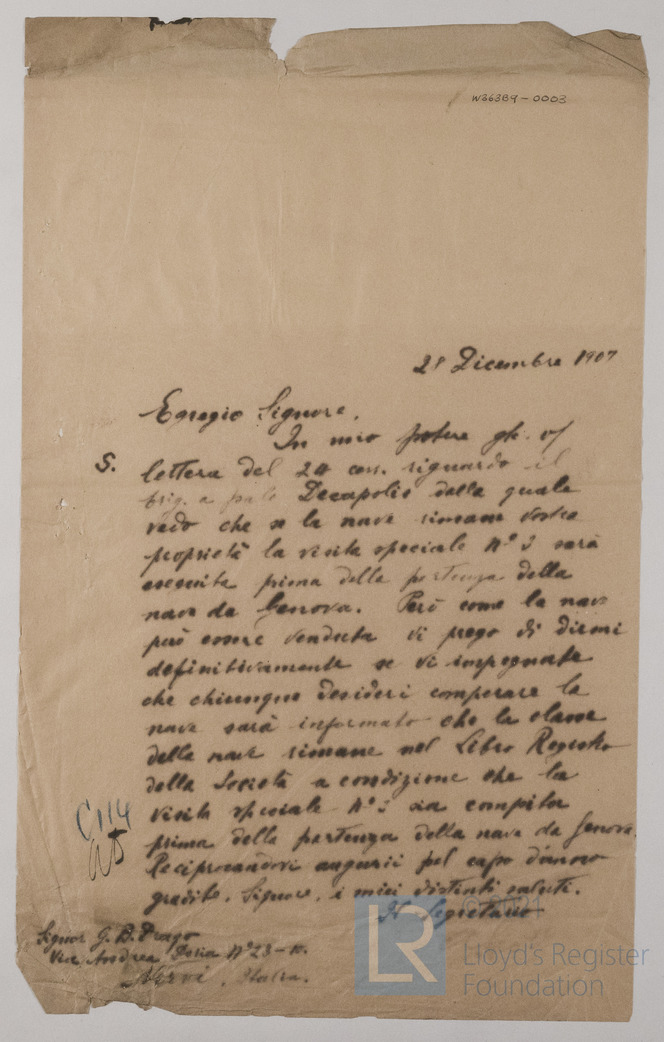 W363B9-0003
28 Dicembre 1907
Egregio Signore,
In mio potere gt. v/
S. lettera del 24 corr. riguardo il
brig. a palo Decapolis dalla quale
vedo che se la nave rimane vostra
proprietà la visita speciale Nº 3 sarà
eseguita prima della partenza della
nave da Genova. Però come la nave
può essere venduta vi prego di dirmi
definitivamente se vi impegnate
che chiunque desideri comperare la
nave sarà informato che la classe
della nave rimane nel Libro Registro
della Società a condizione che la
visita speciale Nº 3 sia compita
prima della partenza della nave da Genova.
Reciprocandovi augurii pel capo d'anno
gradite, Signore, i miei distinti saluti.
Il Segretario
C114
Signor G. B. Drago
Via Andrea Doria Nº 23-
Nervi, Italia.
© 2021
LR Lloyd's Register
Foundation